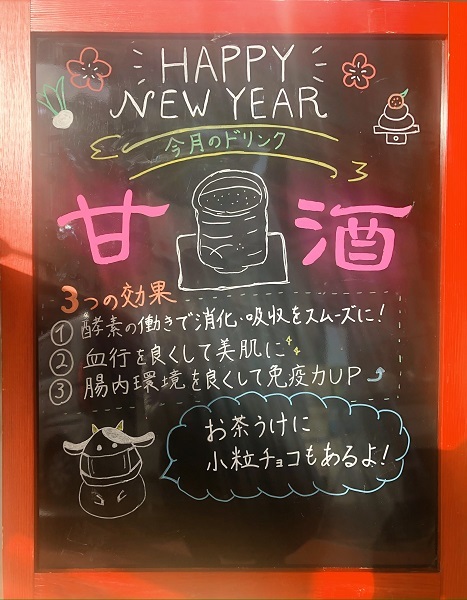 HAPPY
NEW YEAR
今月のドリンク
甘酒
3つの効果
① 酵素の働きで消化・吸収をスムーズに!
② 血行を良くして美肌に
③ 腸内環境を良くして免疫力UP
お茶うけに
小粒チョコもあるよ!